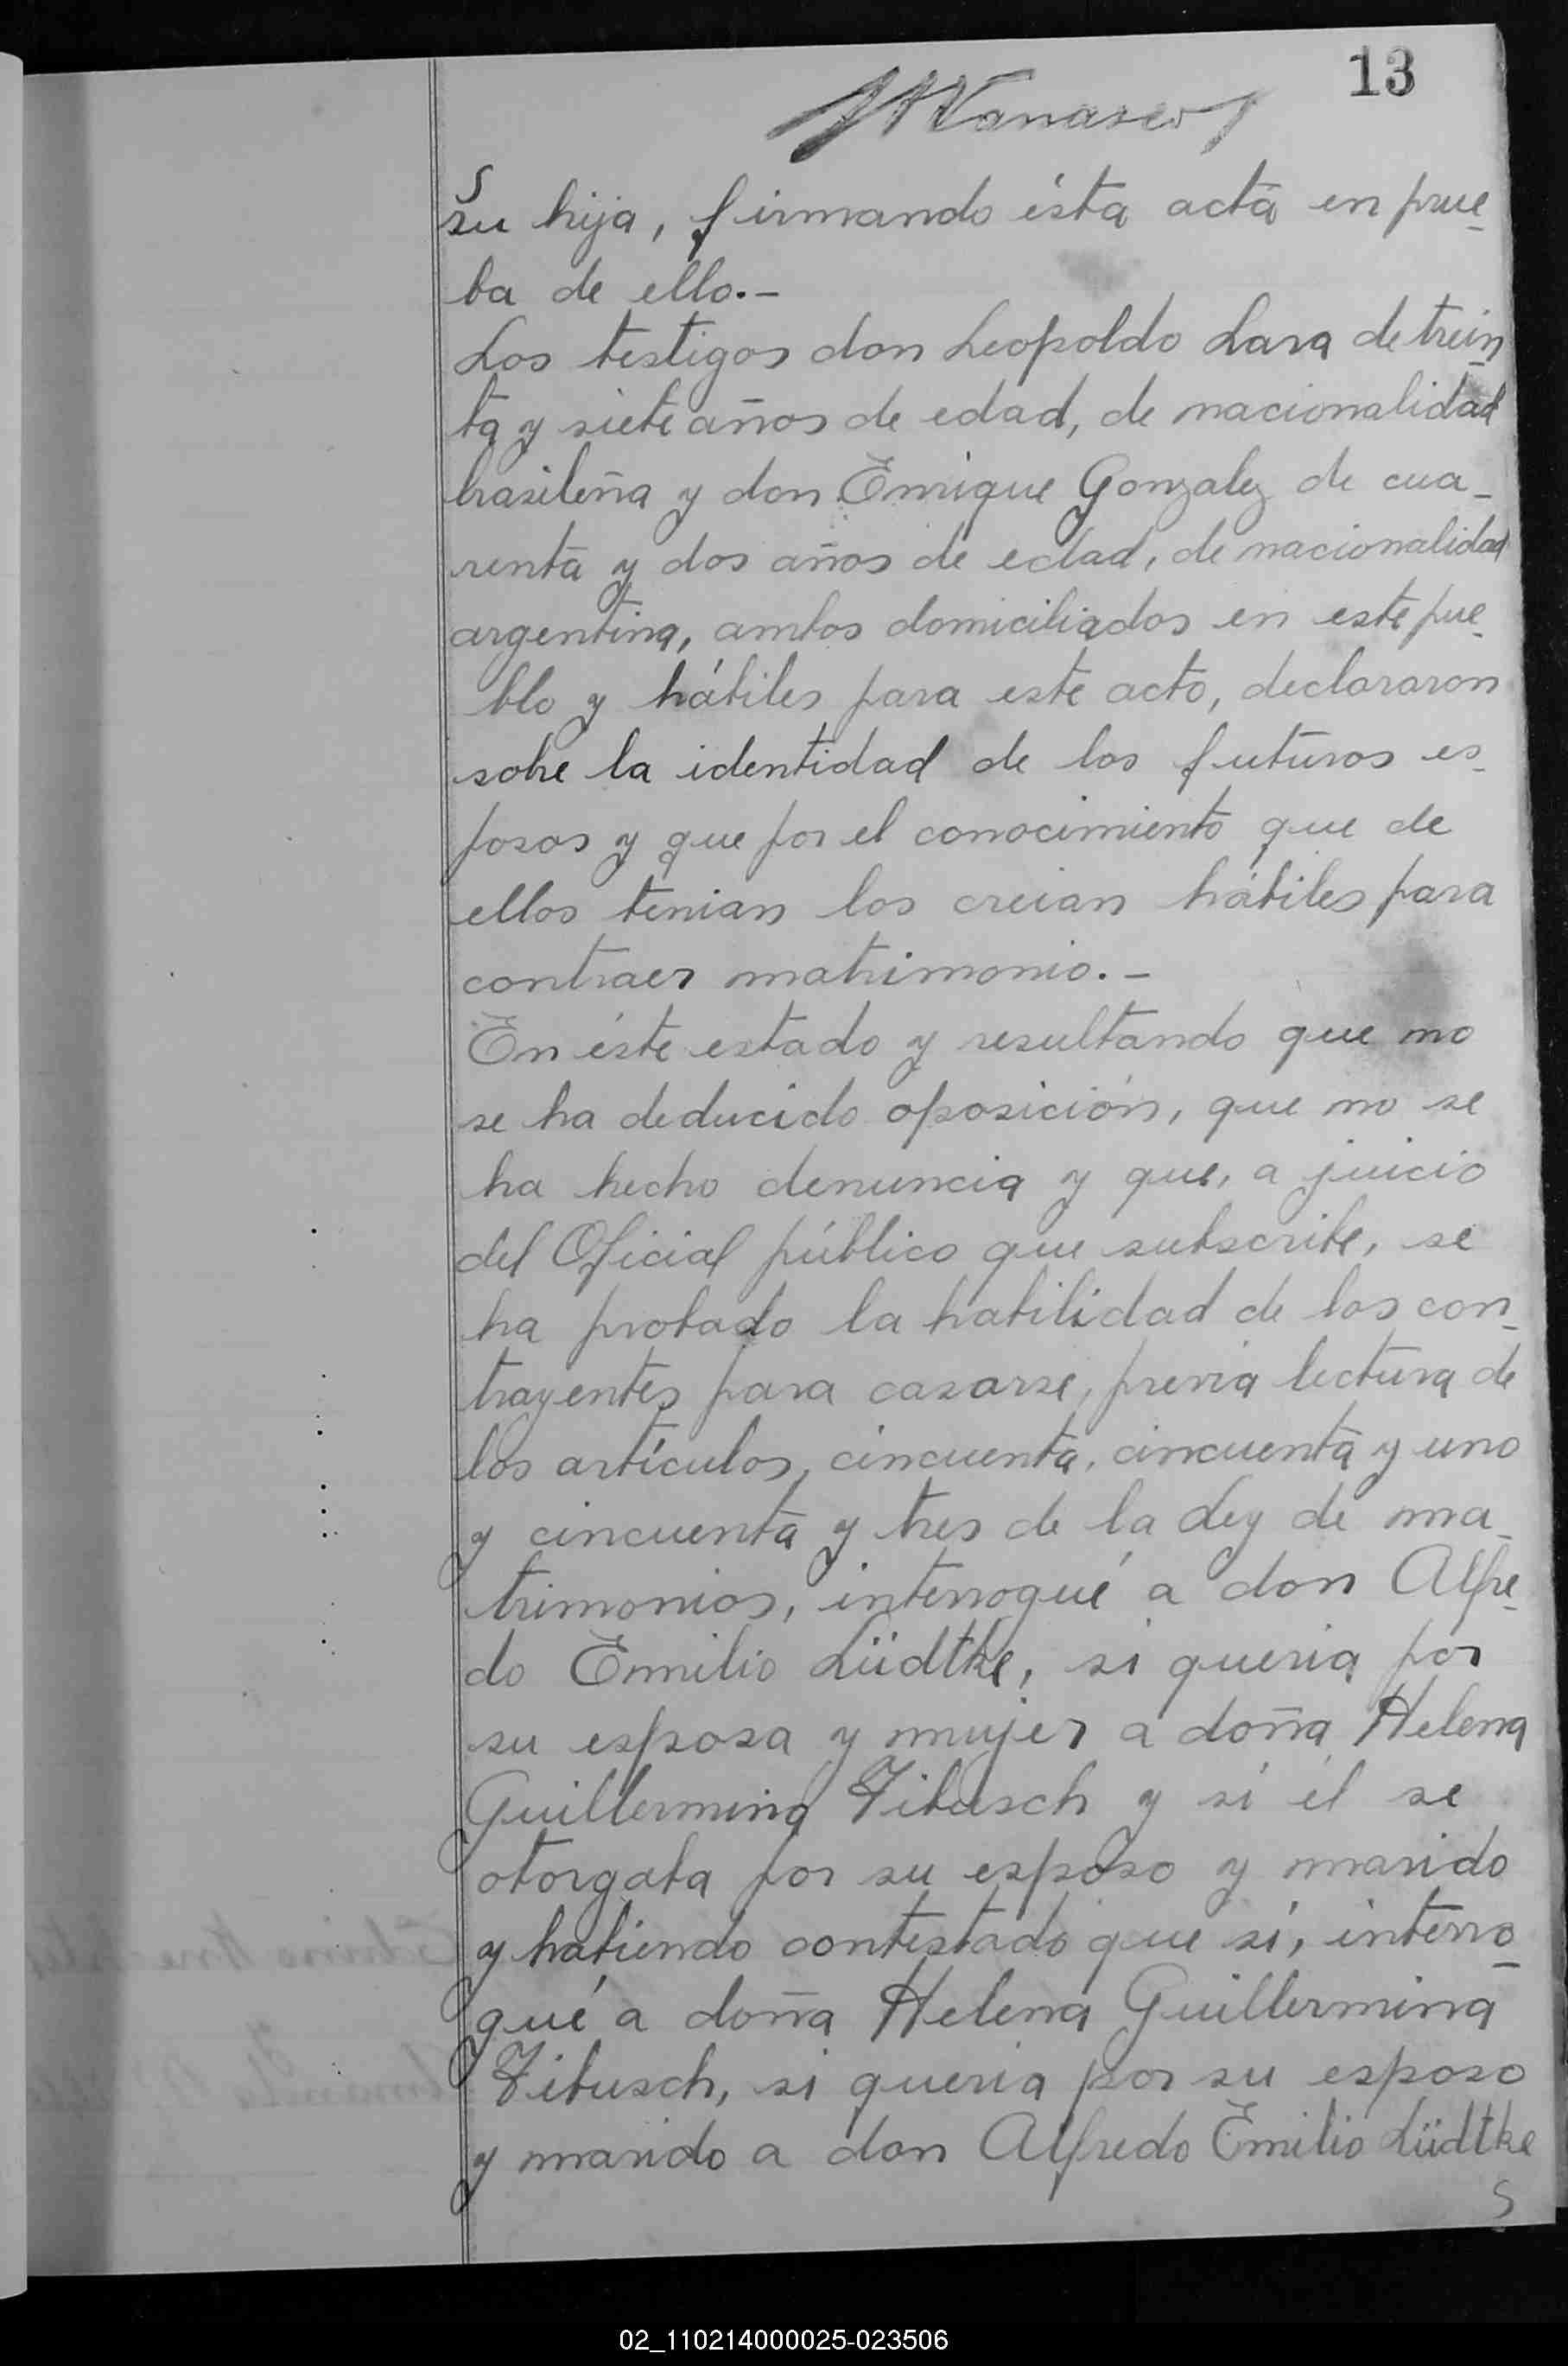 13
S
su hija, firmando ésta acta en prue-
ba de ello.-
Los testigos don Leopoldo Lara de trein-
ta y siete años de edad, de nacionalidad
brasileña y don Enrique Gonzalez de cua-
renta y dos años de edad, de nacionalidad
argentina, ambos domiciliados en este pue-
blo y hábiles para este acto, declararon
sobre la identidad de los futuros es-
posos y que por el conocimiento que de
ellos tenian los creian hábiles para
contraer matrimonio.-
En éste estado y resultando que no
se ha deducido oposición, que no se
ha hecho denuncia y que, a juicio
del Oficial público que subscribe, se
ha probado la habilidad de los con-
trayentes para casarse, previa lectura de
los artículos, cincuenta, cincuenta y uno
y cincuenta y tres de la Ley de ma-
trimonios, interrogué a don Alfre-
do Emilio Lüdtke, si queria por
su esposa y mujer a doña Helena
Guillermina Zibusch y si él se
otorgaba por su esposo y marido
y habiendo contestado que sí, interro-
gué a doña Helena Guillermina
Zibusch, si queria por su esposo
y marido a don Alfredo Emilio Lüdtke
S
02_110214000025-023506